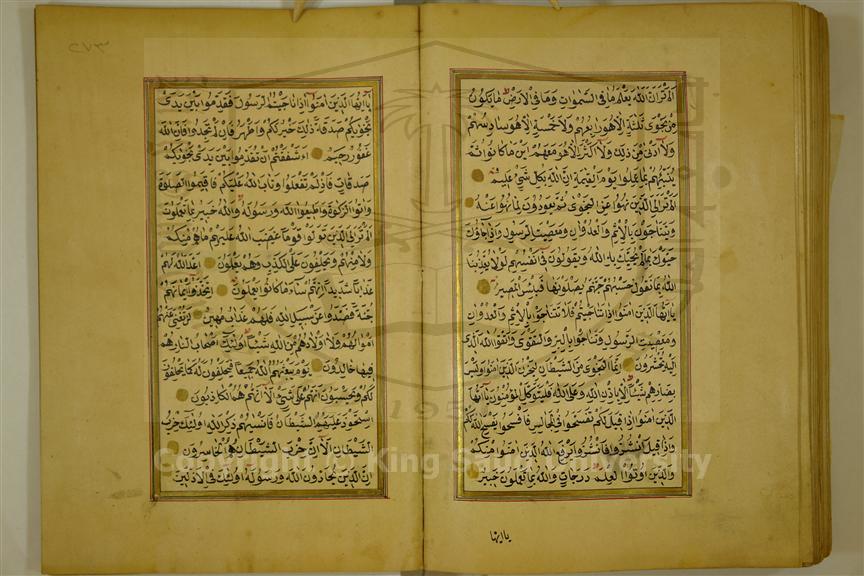 الم تر ان الله يعلم ما فى السموات وما فى الارض ما يكون
من نجوى ثلثة الا هو رابعهم ولا خمسة الا هو سادسهم
ولا ادنى من ذلك ولا اكثر الا هو معهم اين ما كانوا ثم
ينبئهم بما عملوا يوم القيمة ان الله بكل شئ عليم
الم تر الى الذين نهوا عن النجوى ثم يعودون لما نهوا عنه
ويتناجون بالاثم والعدوان ومعصيت الرسول واذا جاؤك
حيوك بما لم يحيك به الله ويقولون فى انفسهم لولا يعذبنا
الله بما نقول حسبهم جهنم يصلونها فبئس المصير
يا ايها الذين امنوا اذا تناجيتم فلا تتناجوا بالاثم والعدوان
ومعصيت الرسول وتناجوا بالبر والتقوى واتقوا الله الذى
اليه تحشرون انما النجوى من الشيطان ليحزن الذين امنوا وليس
بضارهم شيئا الا باذن الله وعلى الله فليتوكل المؤمنون يا ايها
الذين امنوا اذا قيل لكم تفسحوا فى المجالس فافسحوا يفسح الله لكم
واذا قيل انشزوا فانشزوا يرفع الله الذين امنوا منكم
والذين اوتوا العلم درجات والله بما تعملون خبير
يا ايها
٢٧٣
يا ايها الذين امنوا اذا ناجيتم الرسول فقدموا بين يدى
نجويكم صدقة ذلك خير لكم واطهر فان لم تجدوا فان الله
غفور رحيم ءاشفقتم ان تقدموا بين يدى نجويكم
صدقات فاذ لم تفعلوا وتاب الله عليكم فاقيموا الصلوة
واتوا الزكوة واطيعوا الله ورسوله والله خبير بما تعملون
الم تر الى الذين تولوا قوما غضب الله عليهم ما هم منكم
ولا منهم ويحلفون على الكذب وهم يعلمون اعد الله لهم
عذابا شديدا انهم ساء ما كانوا يعملون اتخذوا ايمانهم
جنة فصدوا عن سبيل الله فلهم عذاب مهين لن تغنى عنهم
اموالهم ولا اولادهم من الله شيئا اولئك اصحاب النار هم
فيها خالدون يوم يبعثهم الله جميعا فيحلفون له كما يحلفون
لكم ويحسبون انهم على شئ الا انهم هم الكاذبون
استحوذ عليهم الشيطان فانسيهم ذكر الله اولئك حزب
الشيطان الا ان حزب الشيطان هم الخاسرون
ان الذين يحادون الله ورسوله اولئك فى الاذلين
Copyright © King Saud University